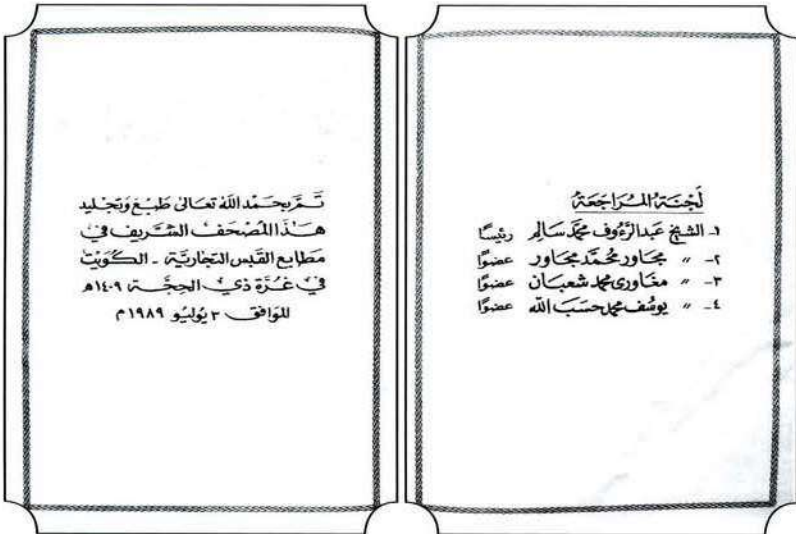 لَجْنَة المُرَاجَعَة
١- الشيخ عبد الرَّءُوف محمَّد سَالِم رئيسًا
٢- ״ مجَاور محُمَّد مجَاور عضوًا
٣- ״ مغَاورى محمد شعبَان عضوًا
٤- ״ يوسُف محمد حسَبَ الله عضوًا
تَمَّ بحَمْد اللّه تعَالى طَبْع وَتجْليد
هَذا المُصْحَف الشَّريف في
مطَابع القَبس التجَاريَّة - الكُوَيْت
في غُرَّة ذي الحِجَّة ١٤٠٩ه
الموَافق ٣ يُوليُو ١٩٨٩م